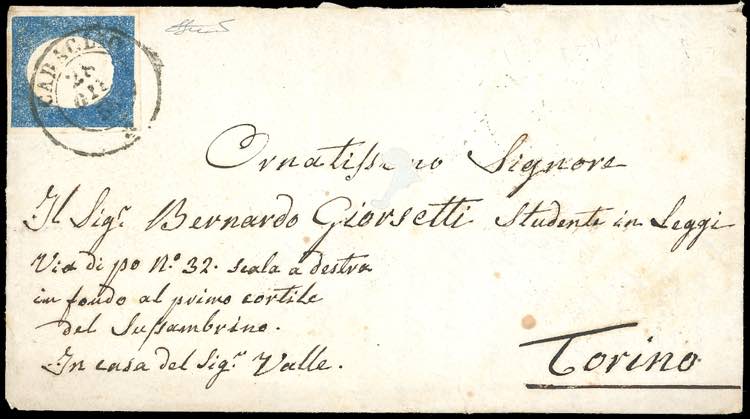 CARAGLIO
28
GIU
Ornatissimo Signore
Il Sig.r Bernardo Giorsetti Studente in Leggi
Via di po N.o 32. scala a destra
in fondo al primo cortile
del
In casa del Sig.r Valle.
Torino